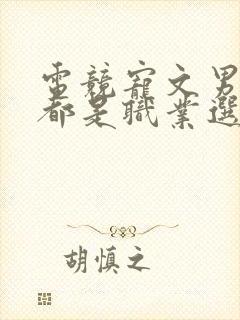 電競寵文男
都是職業選
胡慎之